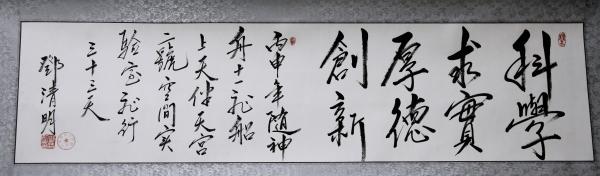 科學
求實
厚德
創新
丙申年隨神
舟十一飛船
上天伴天宮
二號空間實
驗室飛行
三十三天
鄧清明